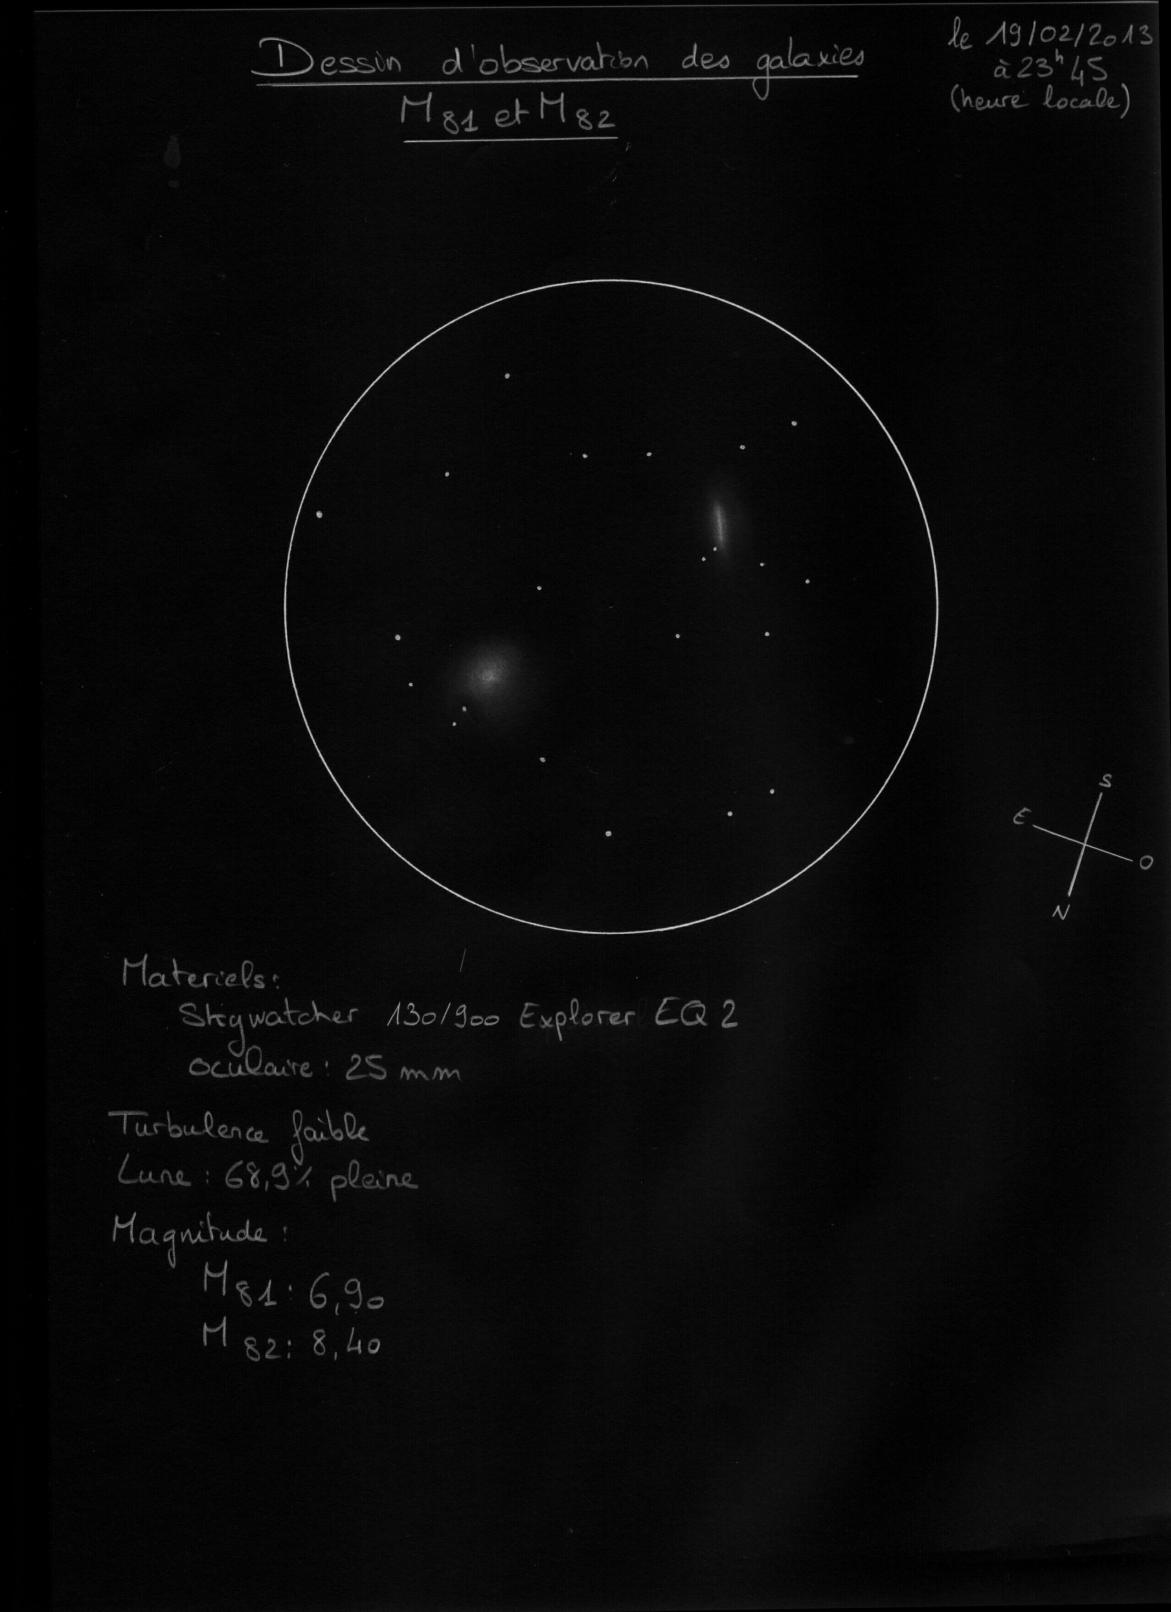 Dessin d'observation des galaxies
M81 et M82
le 19/02/2013
à 23h45
(heure locale)
S
E
O
N
Materiels:
Skywatcher 130/900 Explorer EQ2
oculaire : 25 mm
Turbulence faible
Lune : 68,9% pleine
Magnitude :
M81: 6,90
M82: 8,40